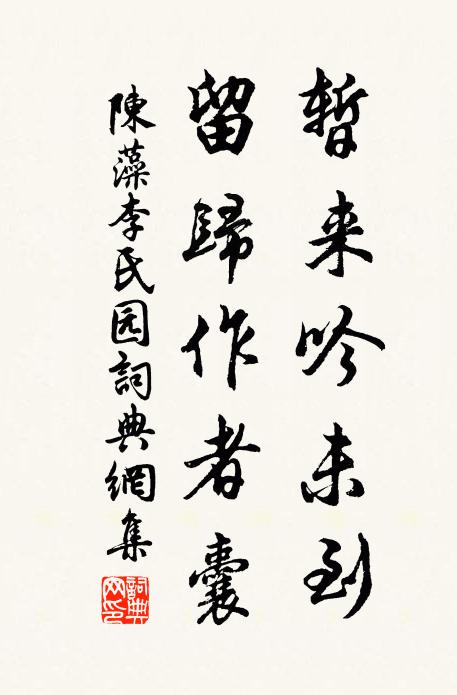 暫来吟未到
留歸作者囊
陳藻李氏园詞典網集
詞典网印